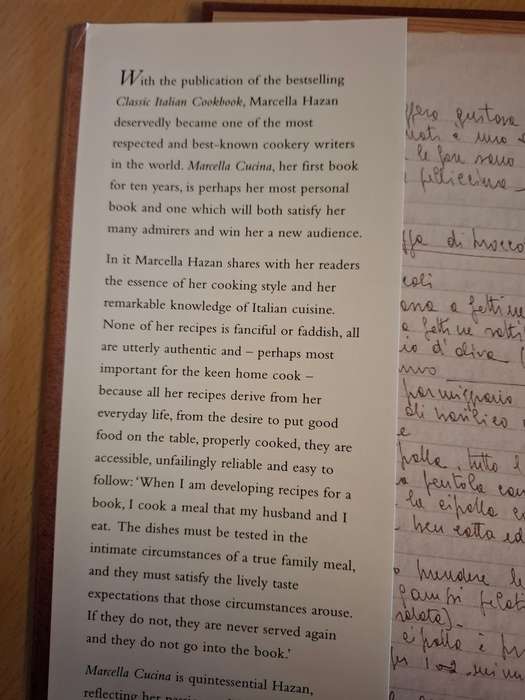 With the publication of the bestselling
Classic Italian Cookbook, Marcella Hazan
deservedly became one of the most
respected and best-known cookery writers
in the world. Marcella Cucina, her first book
for ten years, is perhaps her most personal
book and one which will both satisfy her
many admirers and win her a new audience.
In it Marcella Hazan shares with her readers
the essence of her cooking style and her
remarkable knowledge of Italian cuisine.
None of her recipes is fanciful or faddish, all
are utterly authentic and – perhaps most
important for the keen home cook –
because all her recipes derive from her
everyday life, from the desire to put good
food on the table, properly cooked, they are
accessible, unfailingly reliable and easy to
follow: ‘When I am developing recipes for a
book, I cook a meal that my husband and I
eat. The dishes must be tested in the
intimate circumstances of a true family meal,
and they must satisfy the lively taste
expectations that those circumstances arouse.
If they do not, they are never served again
and they do not go into the book.’
Marcella Cucina is quintessential Hazan,
reflecting her
gustosa
di
a fettine
a fettine
d'oliva
parmigiano
di basilico
tutto
pentola
la cipolla
ben cotta ed
prendere le
cipolla è